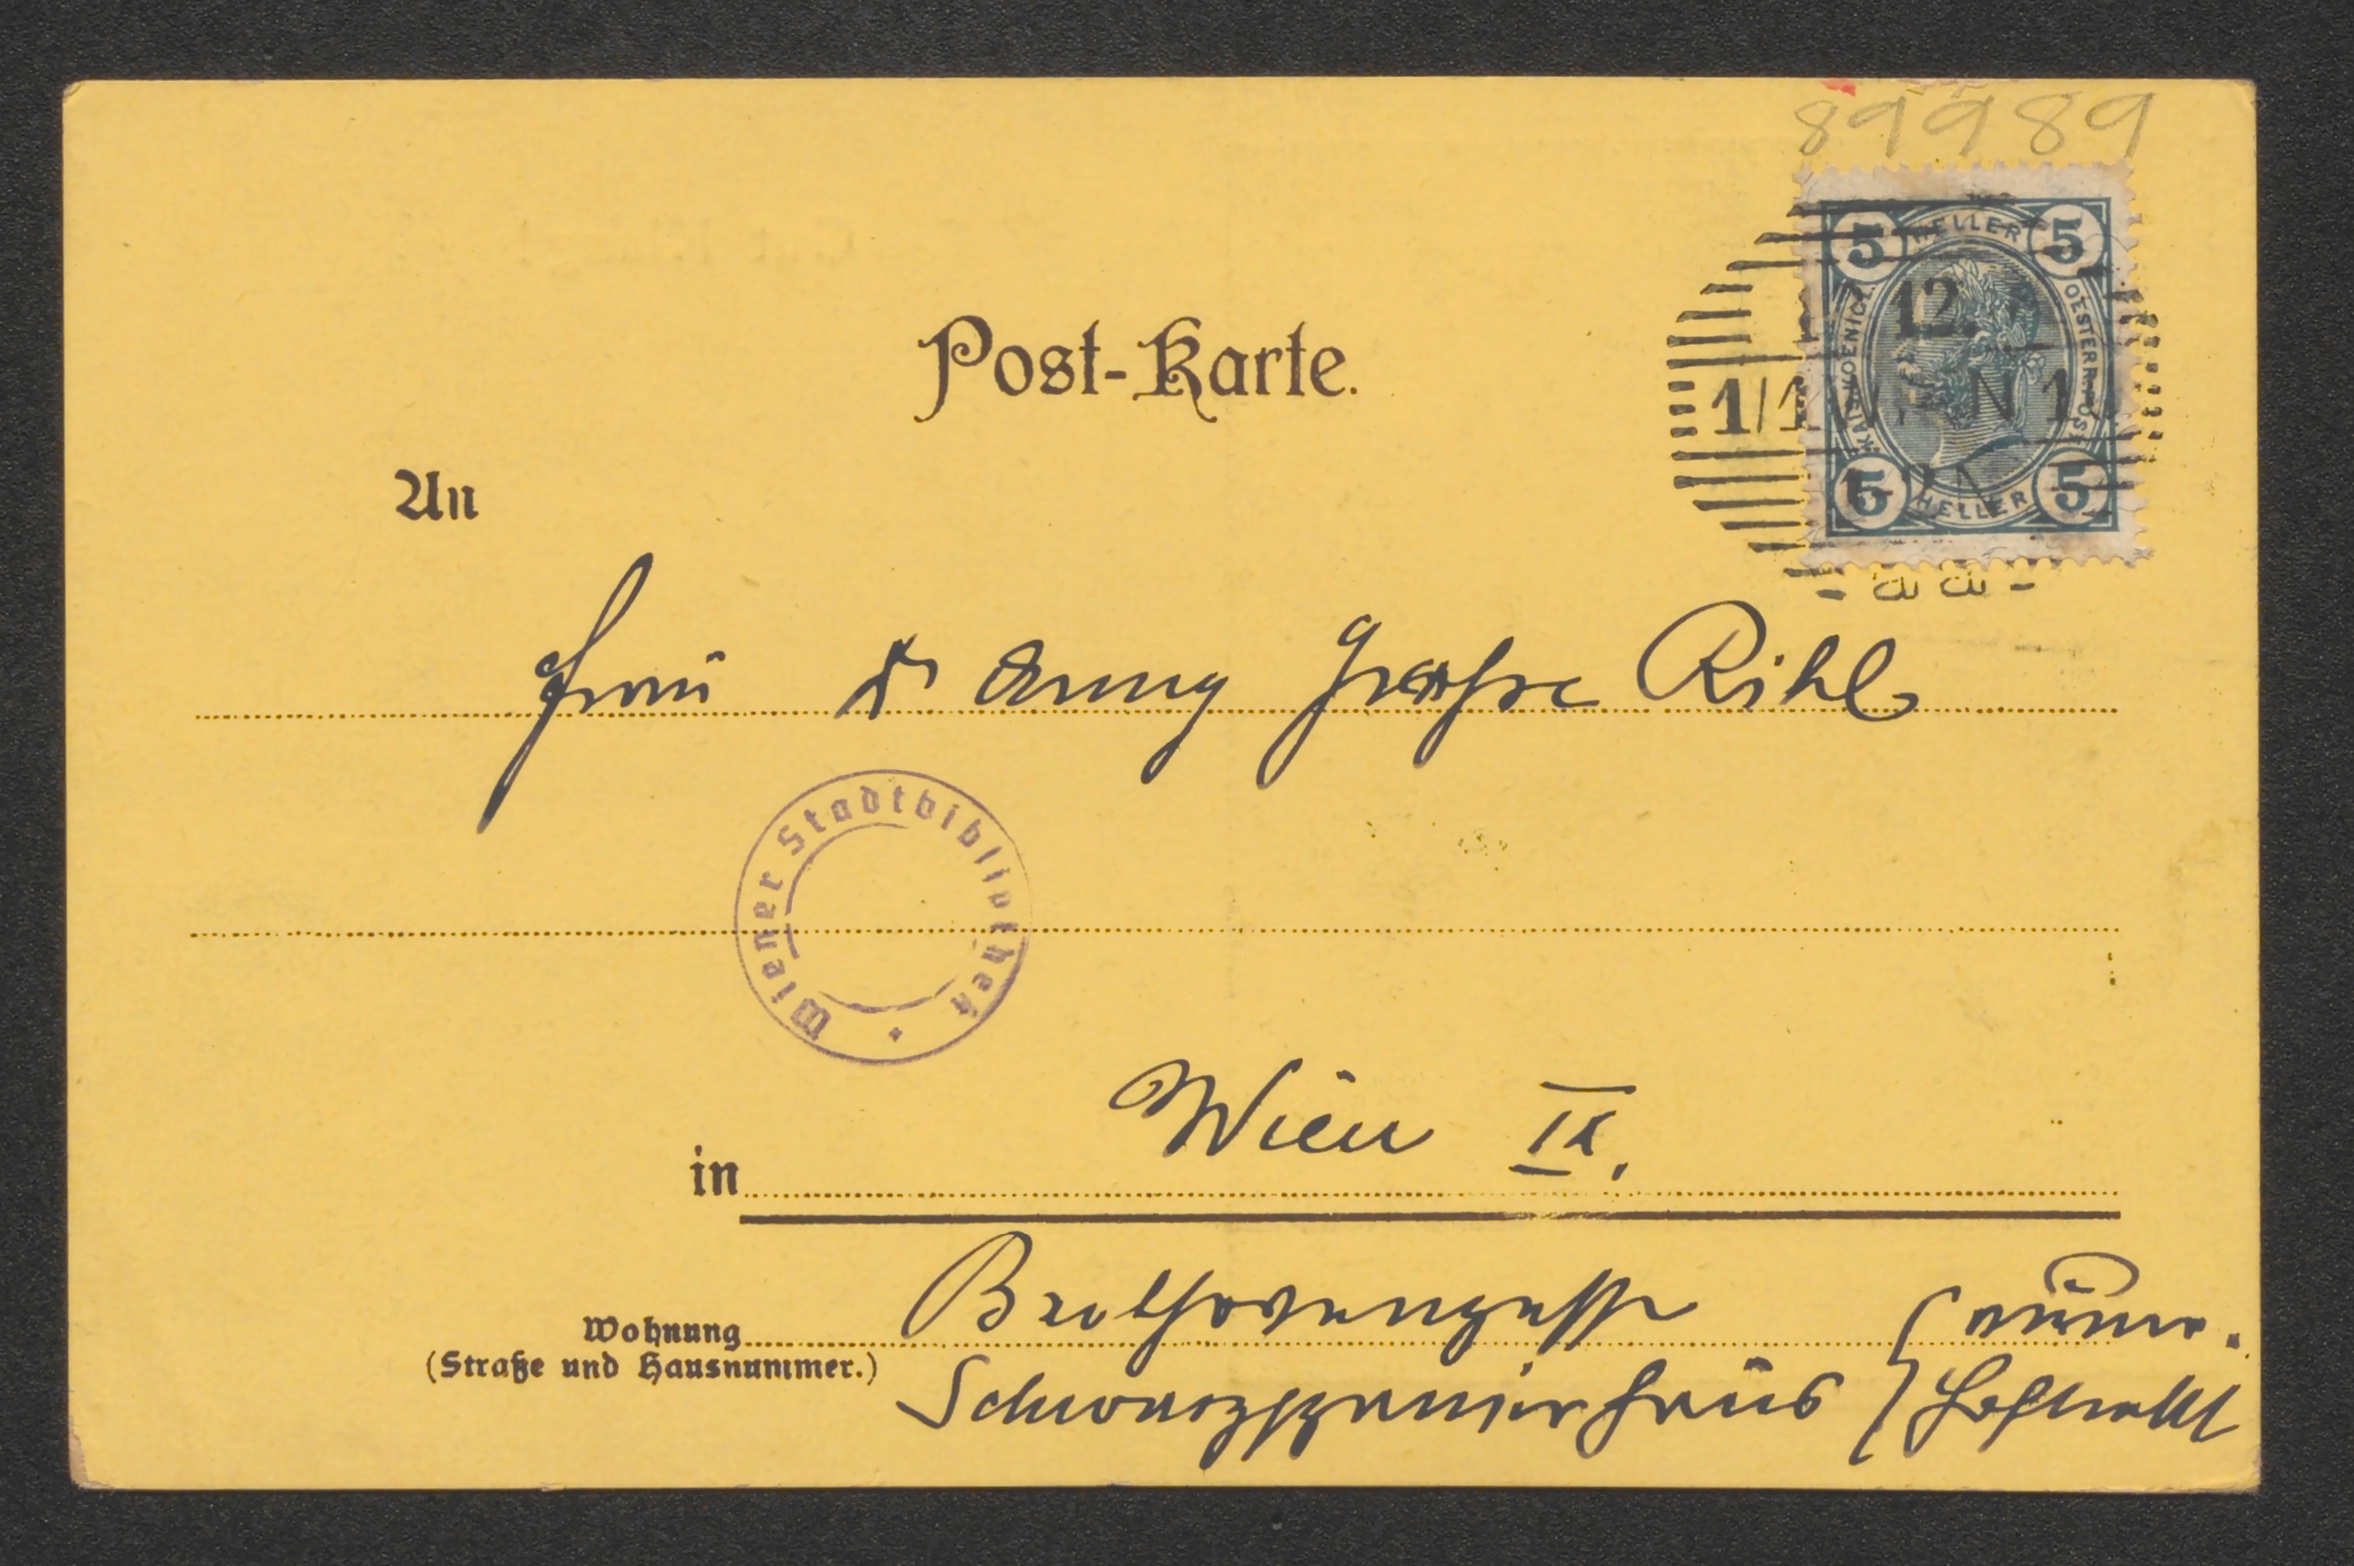 89989
5 HELLER 5
KAIS. KOENIGL. OESTERR. POST
5 HELLER 5
12.
1/1 WIEN 1
Post-Karte.
An
Frau Dr Anny
Wiener Stadtbibliothek
in Wien IX.
Wohnung Beethovengasse
(Straße und Hausnummer.) Schwarzspanierhaus